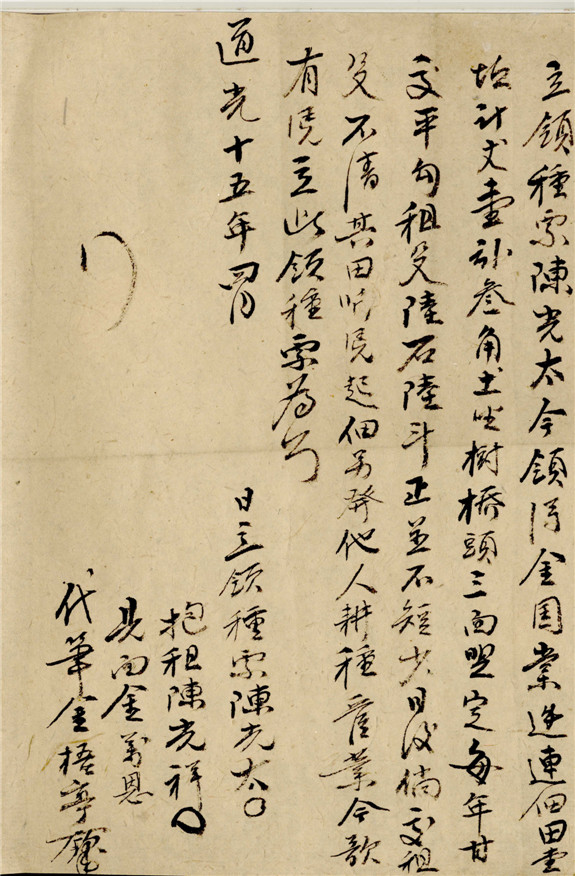 立領種票陳光太今領得金國棠進連佃田壹
坵計丈壹畝叁角土坐樹橋頭三面盟定每年甘
交平勻租谷陸石陸斗正並不短少日後倘交租
谷不清其田听凭起佃另發他人耕種管業今欲
有凭立此領種票為照
道光十五年四月
日立領種票陳光太〇
抱租陳光祥〇
見面金萬恩
代筆金梧亭